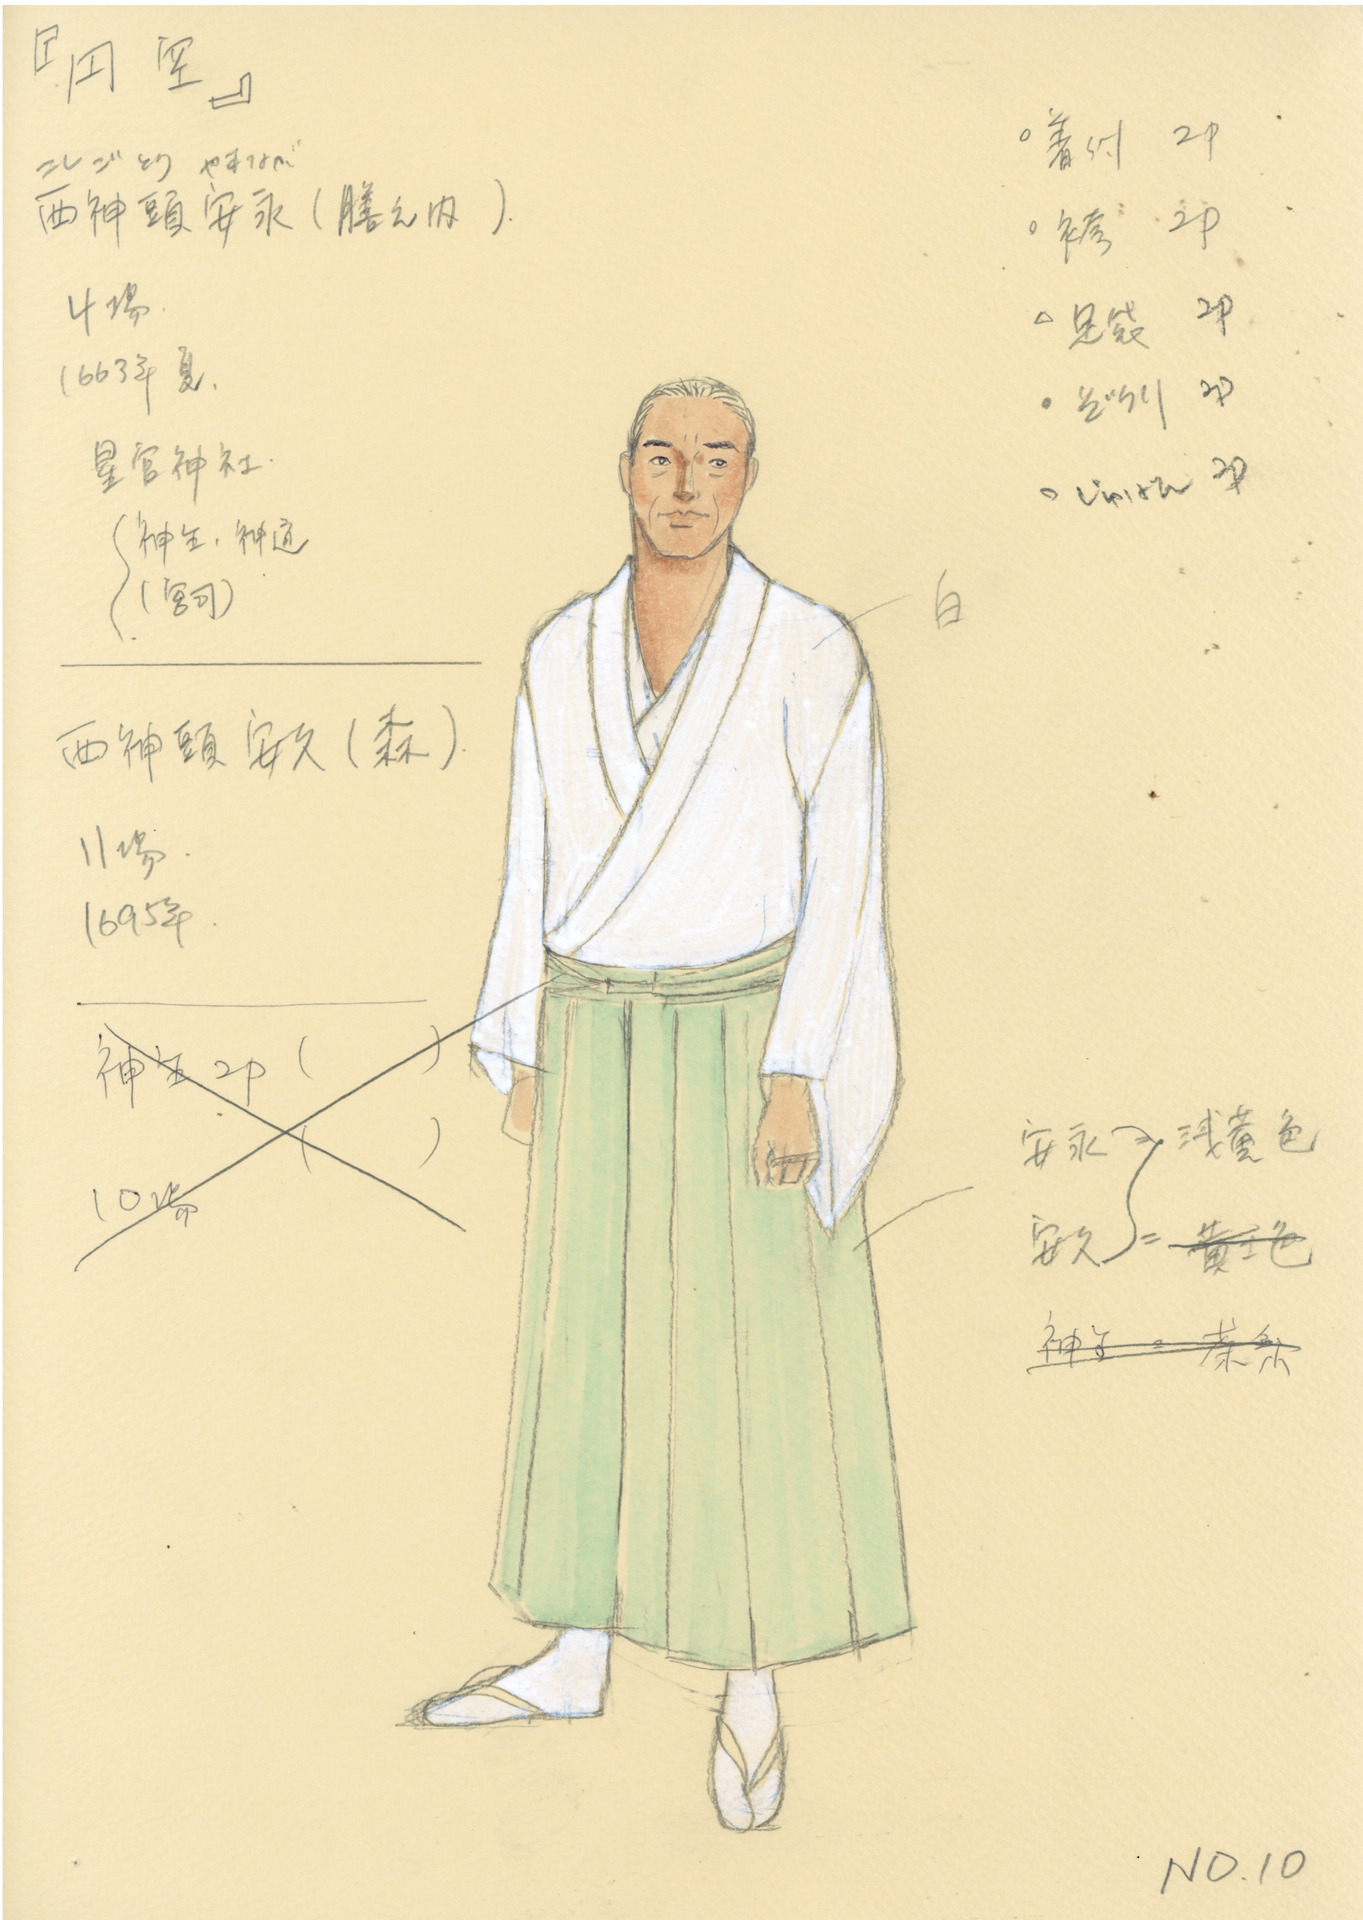 『円空』
にしごとう やすなが
西神頭安永(膳之内)
4場
1663年夏.
星宮神社
神主、神道
(宮司)
西神頭安久(森)
11場
1695年
神主 2P ( )
( )
10場
○着付 2P
○袴 2P
△足袋 2P
・ぞうり 2P
○じゅばん 2P
白
安永=浅黄色
安久=黄土色
神主=茶系
NO.10